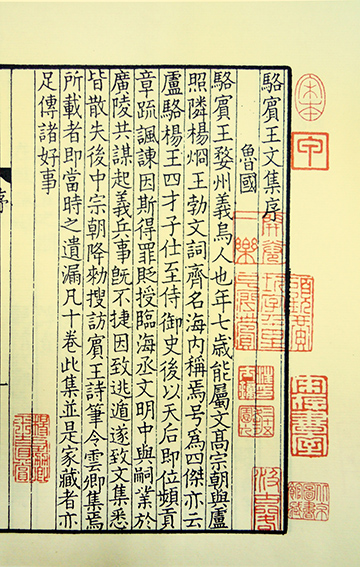 宋本
甲
駱賓王文集序
魯國
駱賓王婺州義烏人也年七歲能屬文高宗朝與盧
照隣楊烱王勃文詞齊名海內稱焉号為四傑亦云
盧駱楊王四才子仕至侍御史後以天后即位頻貢
章疏諷諫因斯得罪貶授臨海丞文明中與嗣業於
廣陵共謀起義兵事旣不捷因致逃遁遂致文集悉
皆散失後中宗朝降勑搜訪賓王詩筆令雲卿集焉
所載者即當時之遺漏凡十卷此集並是家藏者亦
足傳諸好事